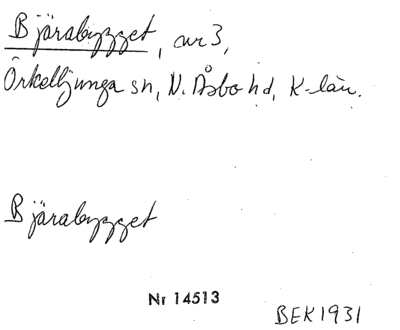 Bjärabygget, avr 3,
Örkelljunga sn, N. Åsbo hd, K-län.
Bjärabygget
Nr 14513
BEK1931